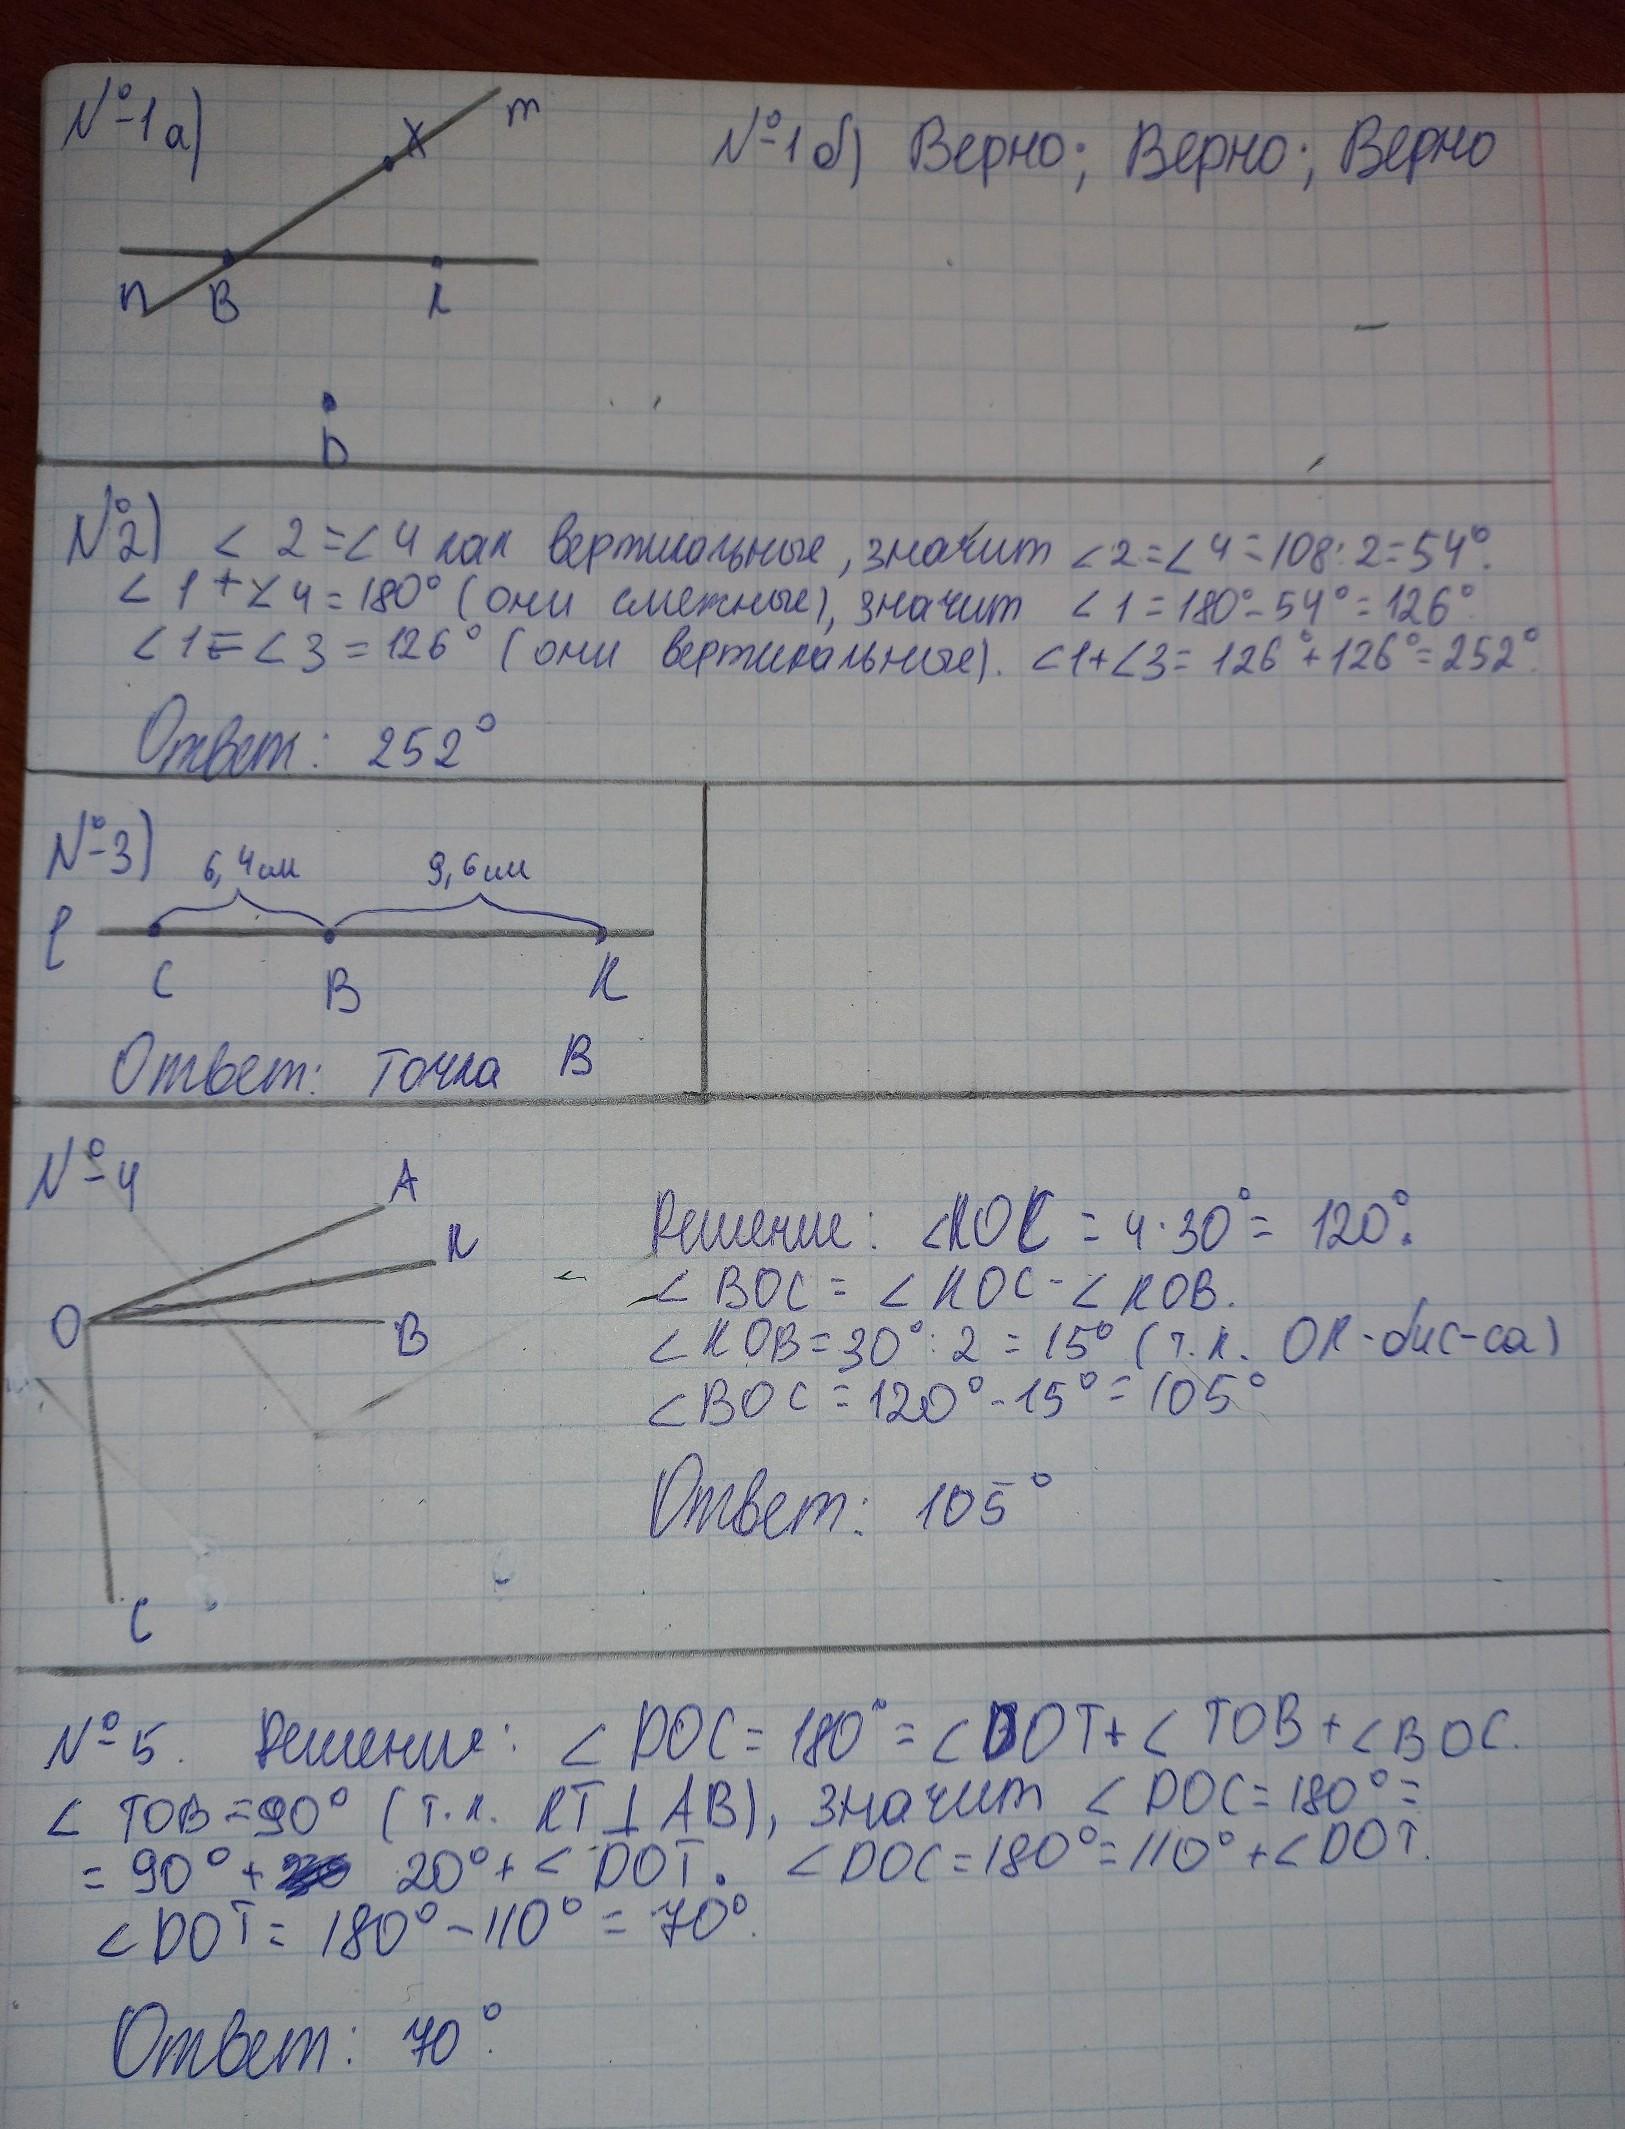 №1а)
X
m
№1б) Верно; Верно; Верно
n
B
K
D
№2) ∠2=∠4 как вертикальные, значит ∠2=∠4=108:2=54°.
∠1+∠4=180° (они смежные), значит ∠1=180°-54°=126°.
∠1=∠3=126° (они вертикальные). ∠1+∠3=126°+126°=252°.
Ответ: 252°
№3)
6,4см
9,6см
l
C
B
K
Ответ: Точка B
№4
A
K
O
B
C
Решение: ∠KOC = 4·30°= 120°.
∠BOC = ∠KOC - ∠KOB.
∠KOB=30°:2=15° (т.к. OK-бис-са)
∠BOC=120°-15°=105°
Ответ: 105°
№5. Решение: ∠DOC=180°=∠DOT+∠TOB+∠BOC.
∠TOB=90° (т.к. KT⊥AB), значит ∠DOC=180°=
=90°+ 20°+∠DOT. ∠DOC=180°=110°+∠DOT.
∠DOT=180°-110°=70°.
Ответ: 70°.